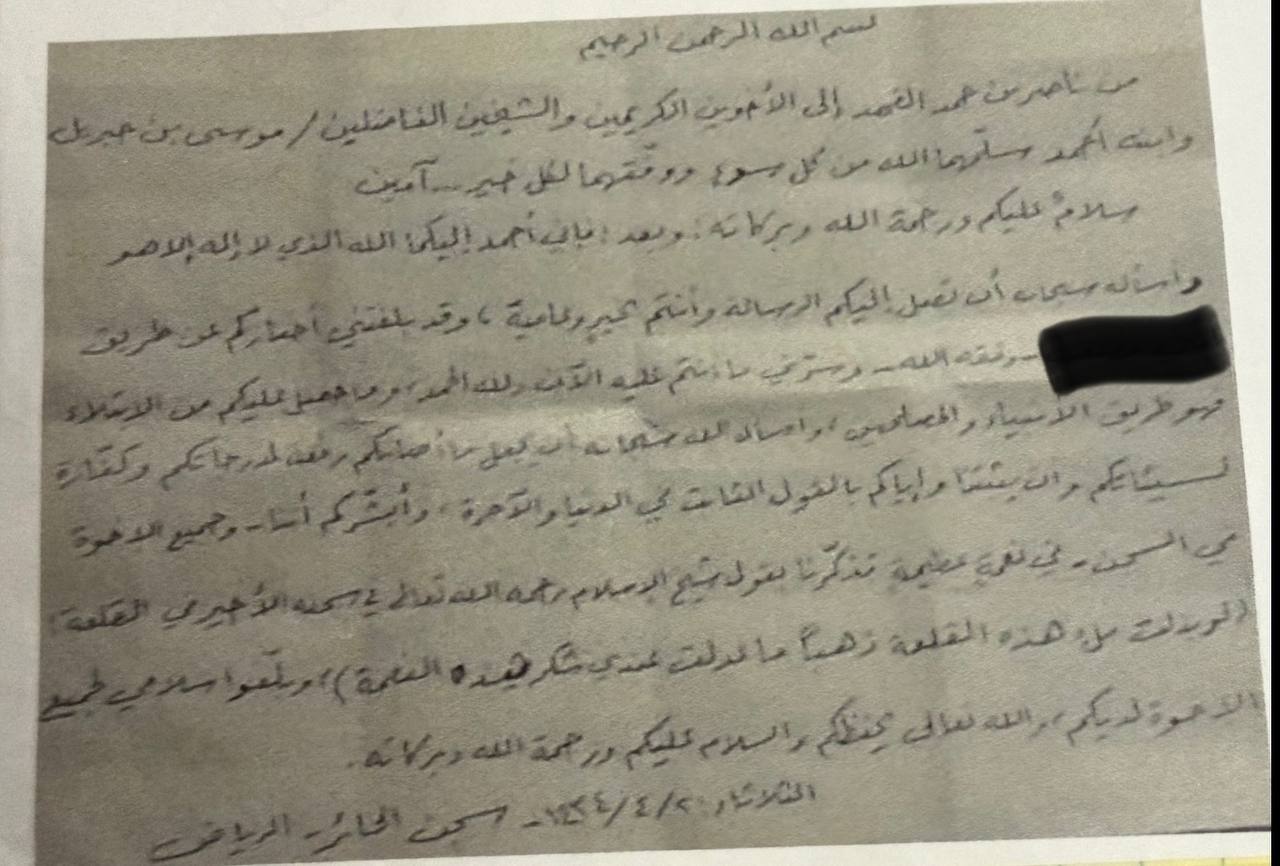 بسم الله الرحمن الرحيم
من ناصر بن حمد الفهد إلى الأخوين الكريمين والشيخين الفاضلين / موسى بن جبريل
وابنه أحمد سلمهما الله من كل سوء ووفقهما لكل خير .. آمين
سلامٌ عليكم ورحمة الله وبركاته : وبعد ؛ فإني أحمد إليكما الله الذي لا إله إلا هو
وأسأله سبحانه أن تصل إليكم الرسالة وأنتم بخير وعافية ، وقد بلغتني أخباركم عن طريق
- وفقه الله - وسرني ما أنتم عليه الآن ولله الحمد ، وما حصل عليكم من الابتلاء
فهو طريق الأنبياء والمصلحين ، واسأل الله سبحانه أن يجعل ما أصابكم رفعة لدرجاتكم وكفّارة
لسيئاتكم وان يثبتنا وإياكم بالقول الثابت في الدنيا والآخرة ، وأبشّركم أننا - وجميع الاخوة
في السجن - في نعمة عظيمة تذكّرنا بقول شيخ الإسلام رحمه الله تعالى في سجنه الأخير في القلعة :
(( لو بذلت ملء هذه القلعة ذهباً ما عدلت عندي شكر هذه النعمة )) ، وبلّغوا سلامي لجميع
الاخوة لديكم ، والله تعالى يحفظكم والسلام عليكم ورحمة الله وبركاته .
الثلاثاء : ٢/٤/١٤٣٤ - سجن الحائر - الرياض